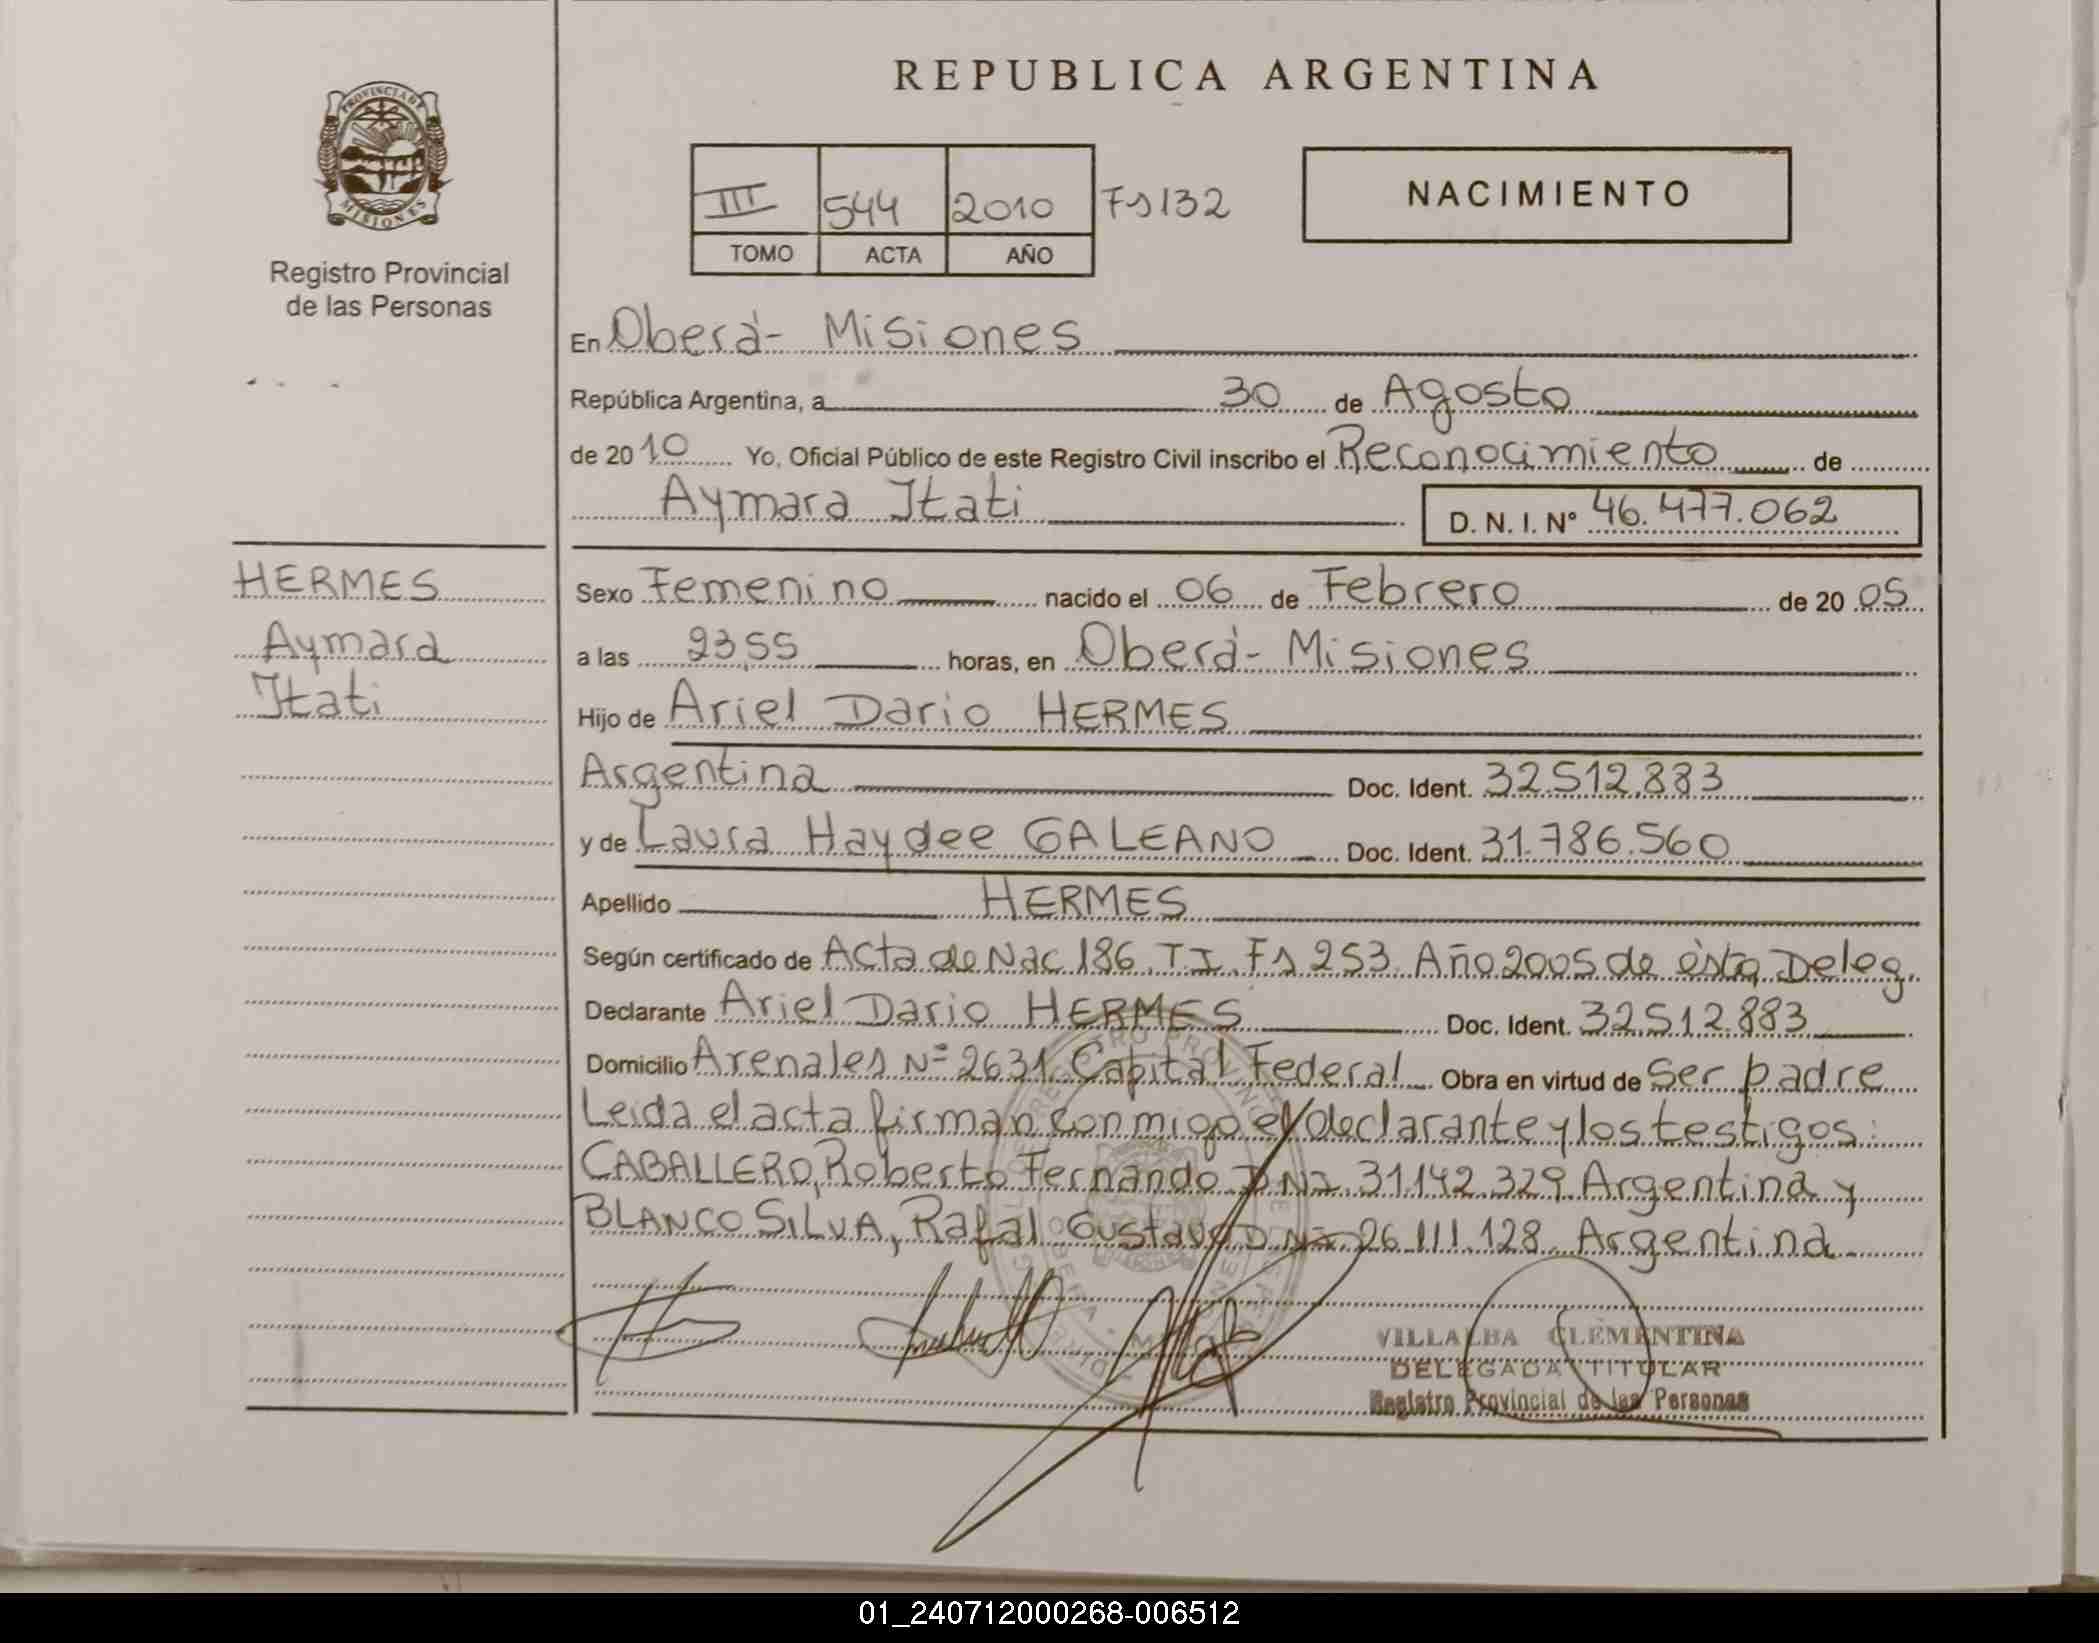 REPUBLICA ARGENTINA
PROVINCIA DE
MISIONES
Registro Provincial
de las Personas
III 544 2010 Fs 132
TOMO ACTA AÑO
NACIMIENTO
En Oberá - Misiones
República Argentina, a 30 de Agosto
de 2010 Yo, Oficial Público de este Registro Civil inscribo el Reconocimiento de
Aymara Itati D. N. I. Nº 46.477.062
HERMES
Aymara
Itati
Sexo Femenino nacido el 06 de Febrero de 2005
a las 23,55 horas, en Oberá - Misiones
Hijo de Ariel Dario HERMES
Argentina Doc. Ident. 32.512.883
y de Laura Haydee GALEANO Doc. Ident. 31.786.560
Apellido HERMES
Según certificado de Acta de Nac 186. T I. Fs 253. Año 2005 de èsta Deleg.
Declarante Ariel Dario HERMES Doc. Ident. 32.512.883
Domicilio Arenales Nº 2631. Capital Federal Obra en virtud de Ser padre
Leida el acta firman conmigo el declarante y los testigos:
CABALLERO, Roberto Fernando DNI. 31.142.329. Argentina y
BLANCO SILVA, Rafal Gustavo DNI. 26.111.128. Argentina
VILLALBA CLEMENTINA
DELEGADA TITULAR
Registro Provincial de las Personas
01_240712000268-006512